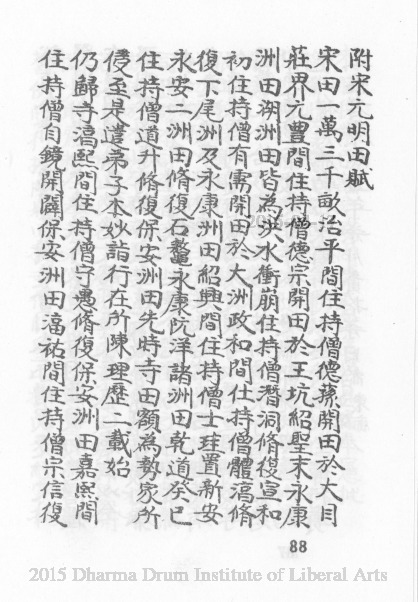 附宋元明田賦
宋田一萬三千畝治平間住持僧德蘊開田於大目
莊界元豐間住持僧德宗開田於王坑紹聖末永康
洲田湖洲田皆為洪水衝崩住持僧潛洞脩復宣和
初住持僧有需開田於大洲政和間住持僧體淳脩
復下尾洲及永康洲田紹興間住持僧士珪置新安
永安二洲田脩復石鰲永康阮洋諸洲田乾道癸巳
住持僧道升脩復保安洲田先時寺田額為勢家所
侵至是遣弟子本妙詣行在所陳理歷二載始
仍歸寺淳熙間住持僧守愚脩復保安洲田嘉熙間
住持僧自鏡開闢保安洲田淳祐間住持僧宗信復
88
2015 Dharma Drum Institute of Liberal Arts